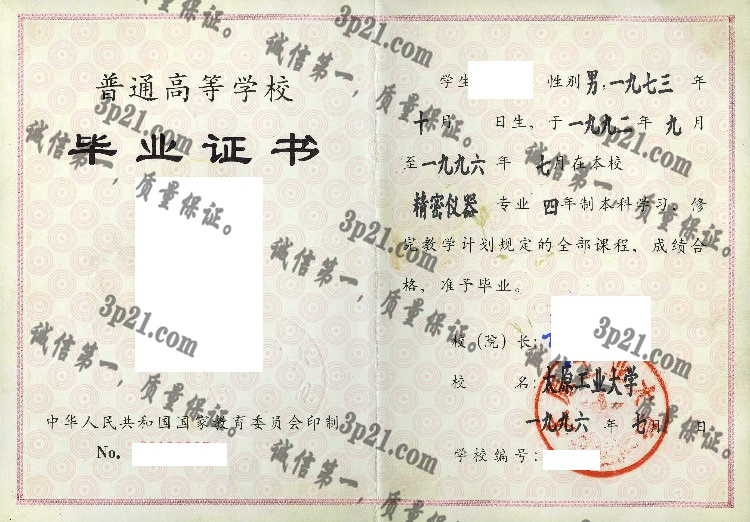 普通高等学校
毕业证书
中华人民共和国国家教育委员会印制
No.
学生 性别 男,一九七三 年
十月 日生、于一九九二年 九 月
至一九九六 年 七月在本校
精密仪器 专业 四年制本科学习,修
完教学计划规定的全部课程,成绩合
格,准予毕业。
校(院)长:
校 名:太原工业大学
一九九六 年 七月 日
学校编号:
3p21.com
诚信第一,质量保证。
3p21.com
诚信第一,质量保证。
3p21.com
诚信第一,质量保证。
3p21.com
诚信第一,质量保证。
3p21.com
诚信第一,质量保证。
3p21.com
诚信第一,质量保证。
3p21.com